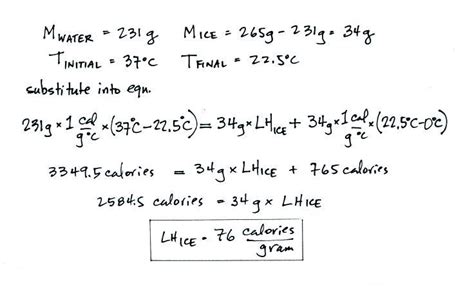 MWATER = 231 g MICE = 265g - 231g = 34g
TINITIAL = 37°C TFINAL = 22.5°C
substitute into eqn.
231g × 1 cal/g°C × (37°C - 22.5°C) = 34g × LHICE + 34g × 1 cal/g°C × (22.5°C - 0°C)
3349.5 calories = 34g × LHICE + 765 calories
2584.5 calories = 34g × LHICE
LHICE = 76 calories/gram